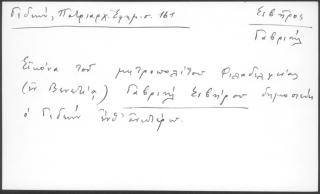 Γεδεών, Πατριαρχ. Εφημ. σ. 161
Σεβῆρος
Γαβριήλ
Εἰκόνα τοῦ μητροπολίτου Φιλαδελφείας
(ἐν Βενετίᾳ) Γαβριήλ Σεβήρου δημοσιεύει
ὁ Γεδεών ἔνθ' ἀνωτέρω.